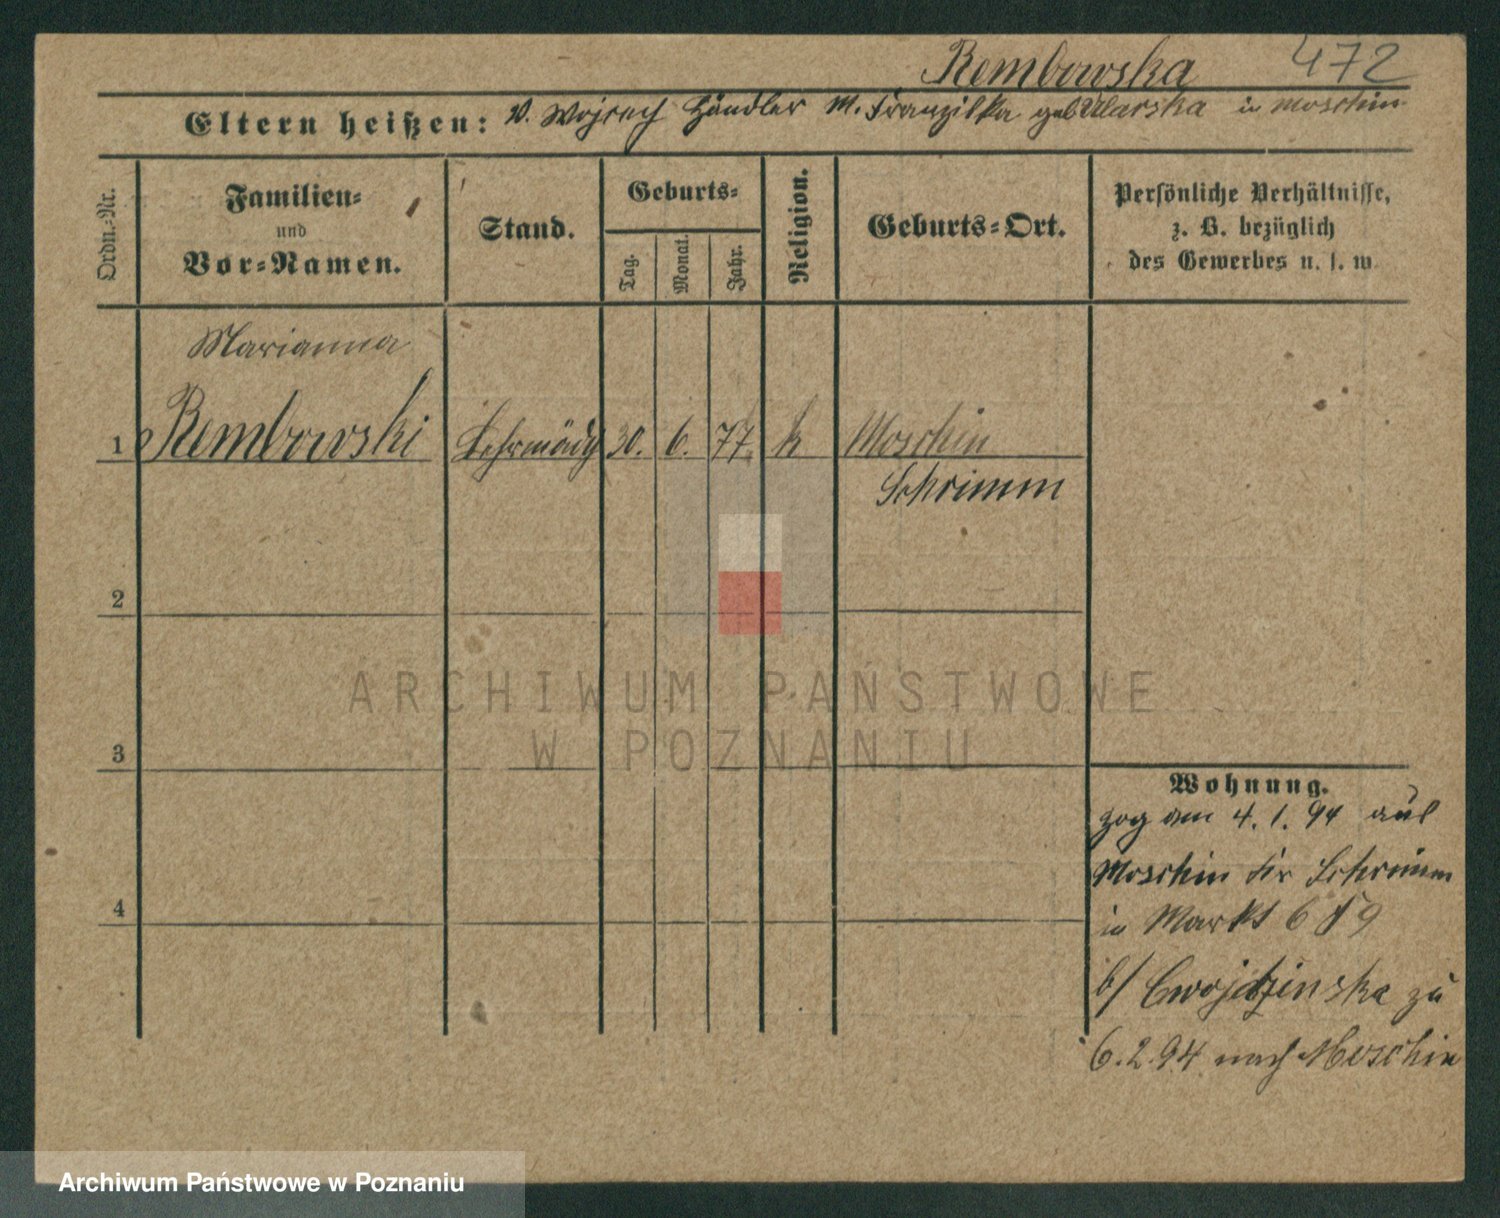 Rembowska 472
Eltern heißen: V. Wojcech Händler M. Franziska geb Ularska in Moschin
Ordn.-Nr.
Familien-
und
Vor-Namen.
Stand.
Geburts-
Tag.
Monat.
Jahr.
Religion.
Geburts-Ort.
Persönliche Verhältnisse,
z. B. bezüglich
des Gewerbes u. s. w
Marianna
1 Rembowski 30. 6. 77. k Moschin
Schrimm
2
ARCHIWUM PAŃSTWOWE
W POZNANIU
3
Wohnung.
zog am 4. 1. 94 aus
Moschin Kr Schrimm
in Markt 6
b/ Cwojdzinska zu
4
6.2.94 nach Moschin
Archiwum Państwowe w Poznaniu